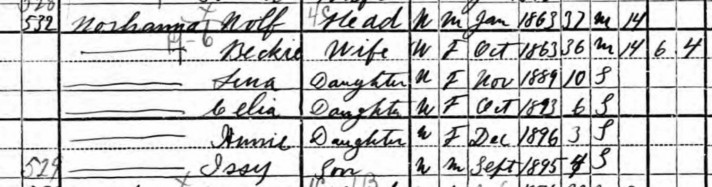 532 Wolf Head W M Jan 1863 37 M 14
Beckie Wife W F Oct 1863 36 M 14 6 4
Lena Daughter W F Nov 1889 10 S
Celia Daughter W F Oct 1893 6 S
Annie Daughter W F Dec 1896 3 S
529 Issy Son W M Sept 1895 4 S